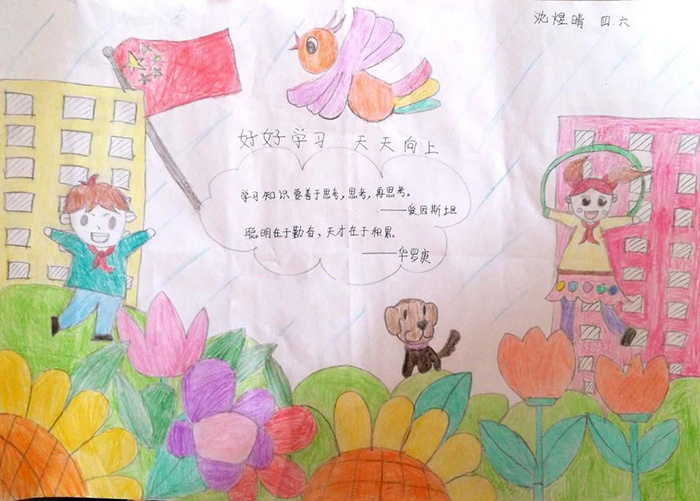 沈煜晴 四 六
好好学习 天天向上
学习知识要善于思考,思考,再思考。
——爱因斯坦
聪明在于勤奋、天才在于积累。
——华罗庚